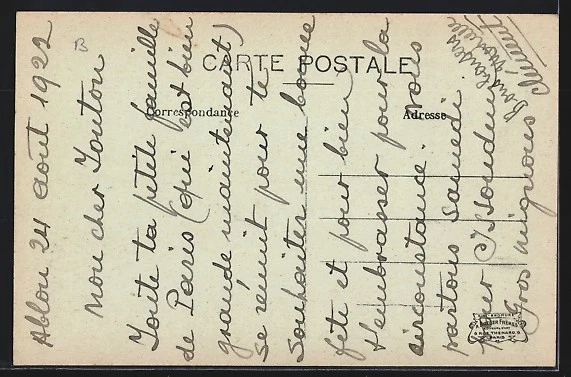 CARTE POSTALE
Correspondance
Adresse
Ablon 24 août 1922
Mon cher Tonton
Toute ta petite famille
de Paris (qui est bien
grande maintenant)
se réunit pour te
souhaiter une bonne
fête et pour bien
t'embrasser pour la
circonstance. Nous
partons samedi
pour Issoudun
Gros mignons
Bons baisers
PARIS